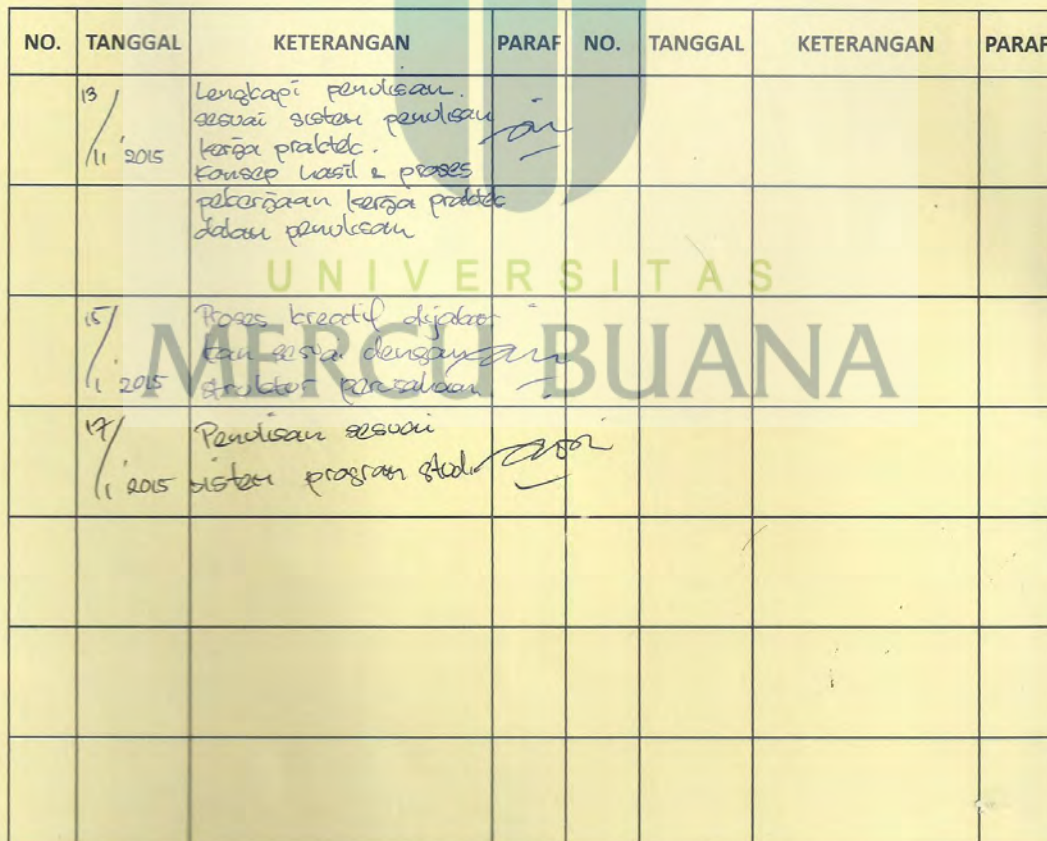 NO. TANGGAL KETERANGAN PARAF NO. TANGGAL KETERANGAN PARAF
13/11 2015 Lengkapi penulisan.
sesuai sistem penulisan
kerja praktek.
Konsep hasil & proses
pekerjaan kerja praktek
dalam penulisan
UNIVERSITAS
MERCU BUANA
15/1 2015 Proses kreatif dijabar
kan sesuai dengan
struktur perusahaan
17/1 2015 Penulisan sesuai
sistem program studi